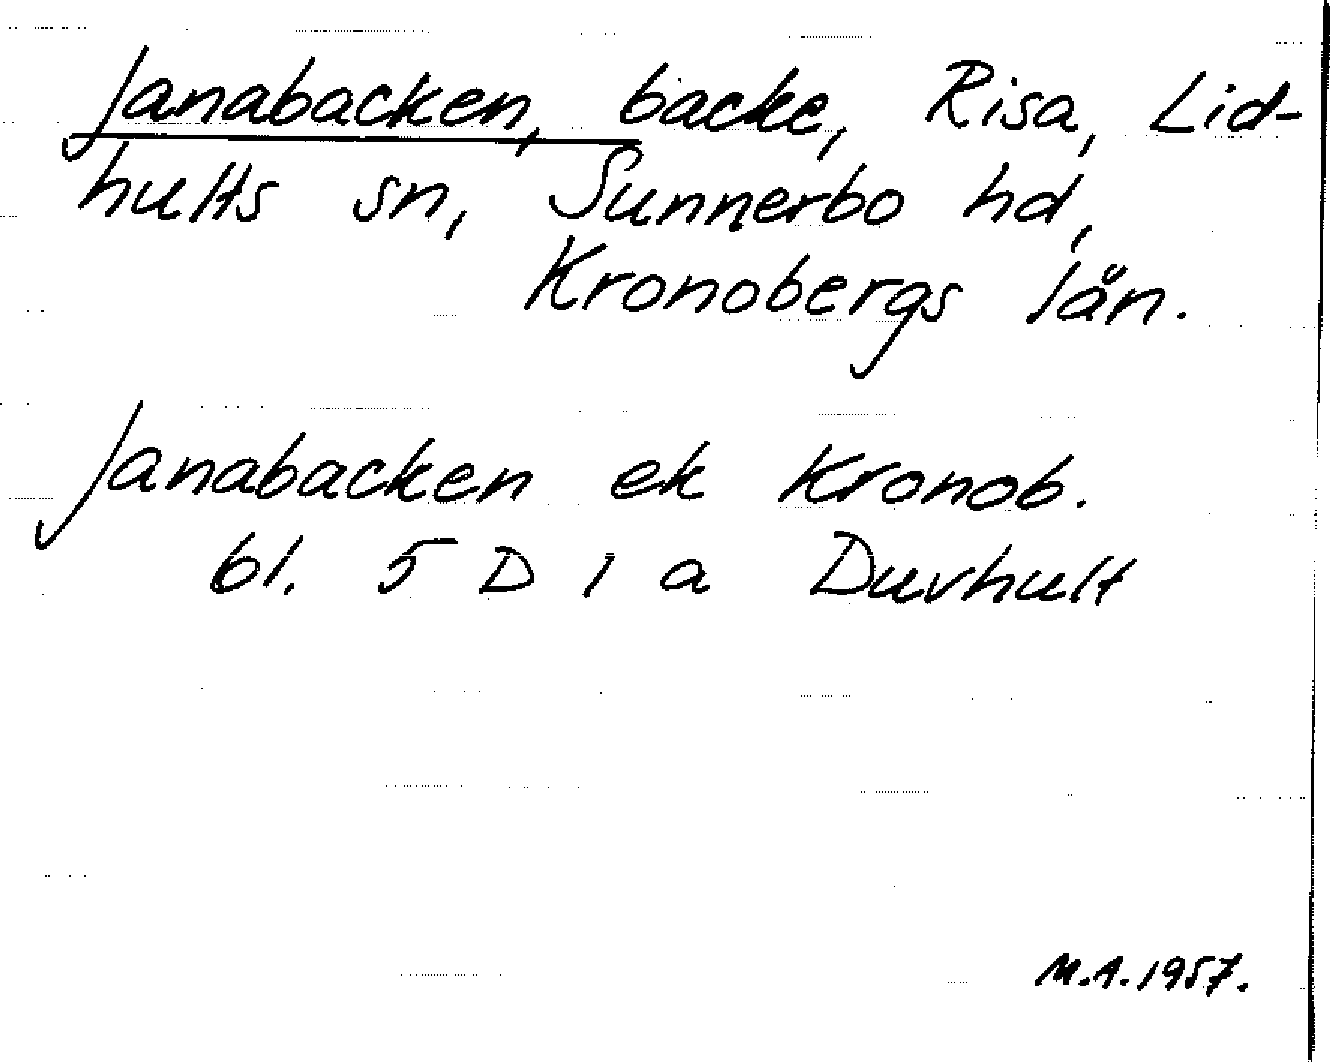 Janabacken, backe, Risa, Lid-
hults sn, Sunnerbo hd,
Kronobergs län.
Janabacken ek Kronob.
bl. 5 D 1 a Duvhult
M.A. 1957.